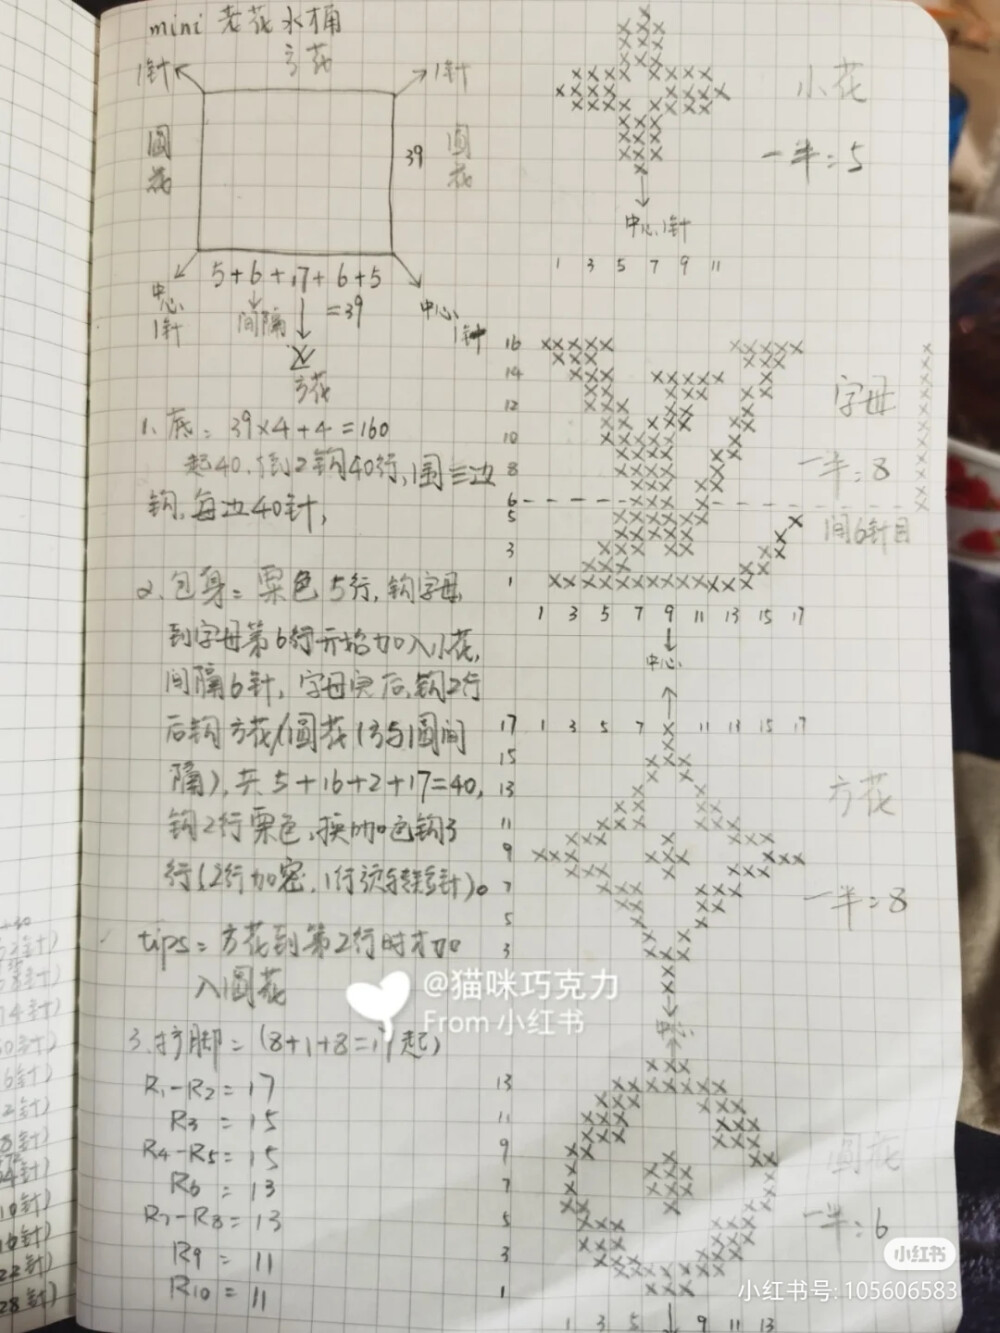 mini 老花水桶
方花
1针
1针
圆花
39
圆花
5+6+17+6+5
=39
中心1针
间隔
中心1针
方花
1、底：39×4+4=160
起40，倒2钩40行，围三边
钩，每边40针，
2、包身：栗色5行，钩字母
到字母第6行开始加入小花，
间隔6针，字母完后，钩2行
后钩方花/圆花（方与圆间
隔），共5+16+2+17=40，
钩2行栗色，换咖色钩3
tips：方花到第2行时才加
入圆花
3、护脚：（8+1+8=17起）
R1-R2=17
R3=15
R4-R5=15
R6=13
R7-R8=13
R9=11
R10=11
小花
一半：5
中心1针
1 3 5 7 9 11
16
14
12
10
8
6
5
3
1
字母
一半：8
间6针目
1 3 5 7 9 11 13 15 17
中心
17 1 3 5 7 11 13 15 17
15
13
11
9
7
5
3
方花
一半：8
中心
13
11
9
7
5
3
1
圆花
一半：6
1 3 5 9 11 13
@猫咪巧克力
From 小红书
小红书
小红书号：105606583